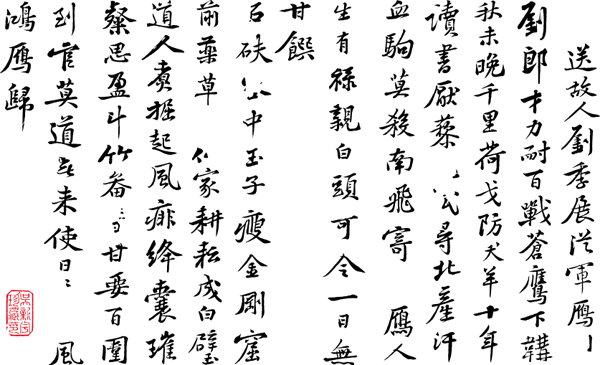 送故人劉季展從軍雁
劉郎才力耐百戰蒼鷹下韝
秋未晚千里荷戈防犬羊十年
讀書厭藜尋北產汗
血駒莫殺南飛寄鴈人
生有祿親白頭可令一日無
甘饌
石砆中玉子瘦金剛窟
前藥草家耕耘成白璧
道人煮掘起風痱絳囊璀
粲思盈斗竹畚甘要百圍
到官莫道來使日〻風
鴻鴈歸